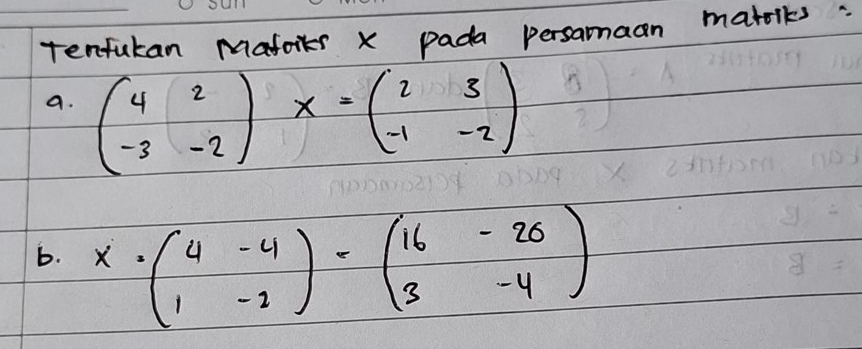 Tentukan Matriks X pada persamaan matriks :
a. ( 4 2 ) X = ( 2 3 )
( -3 -2 ) ( -1 -2 )
b. X . ( 4 -4 ) = ( 16 - 20 )
( 1 -2 ) ( 3 -4 )